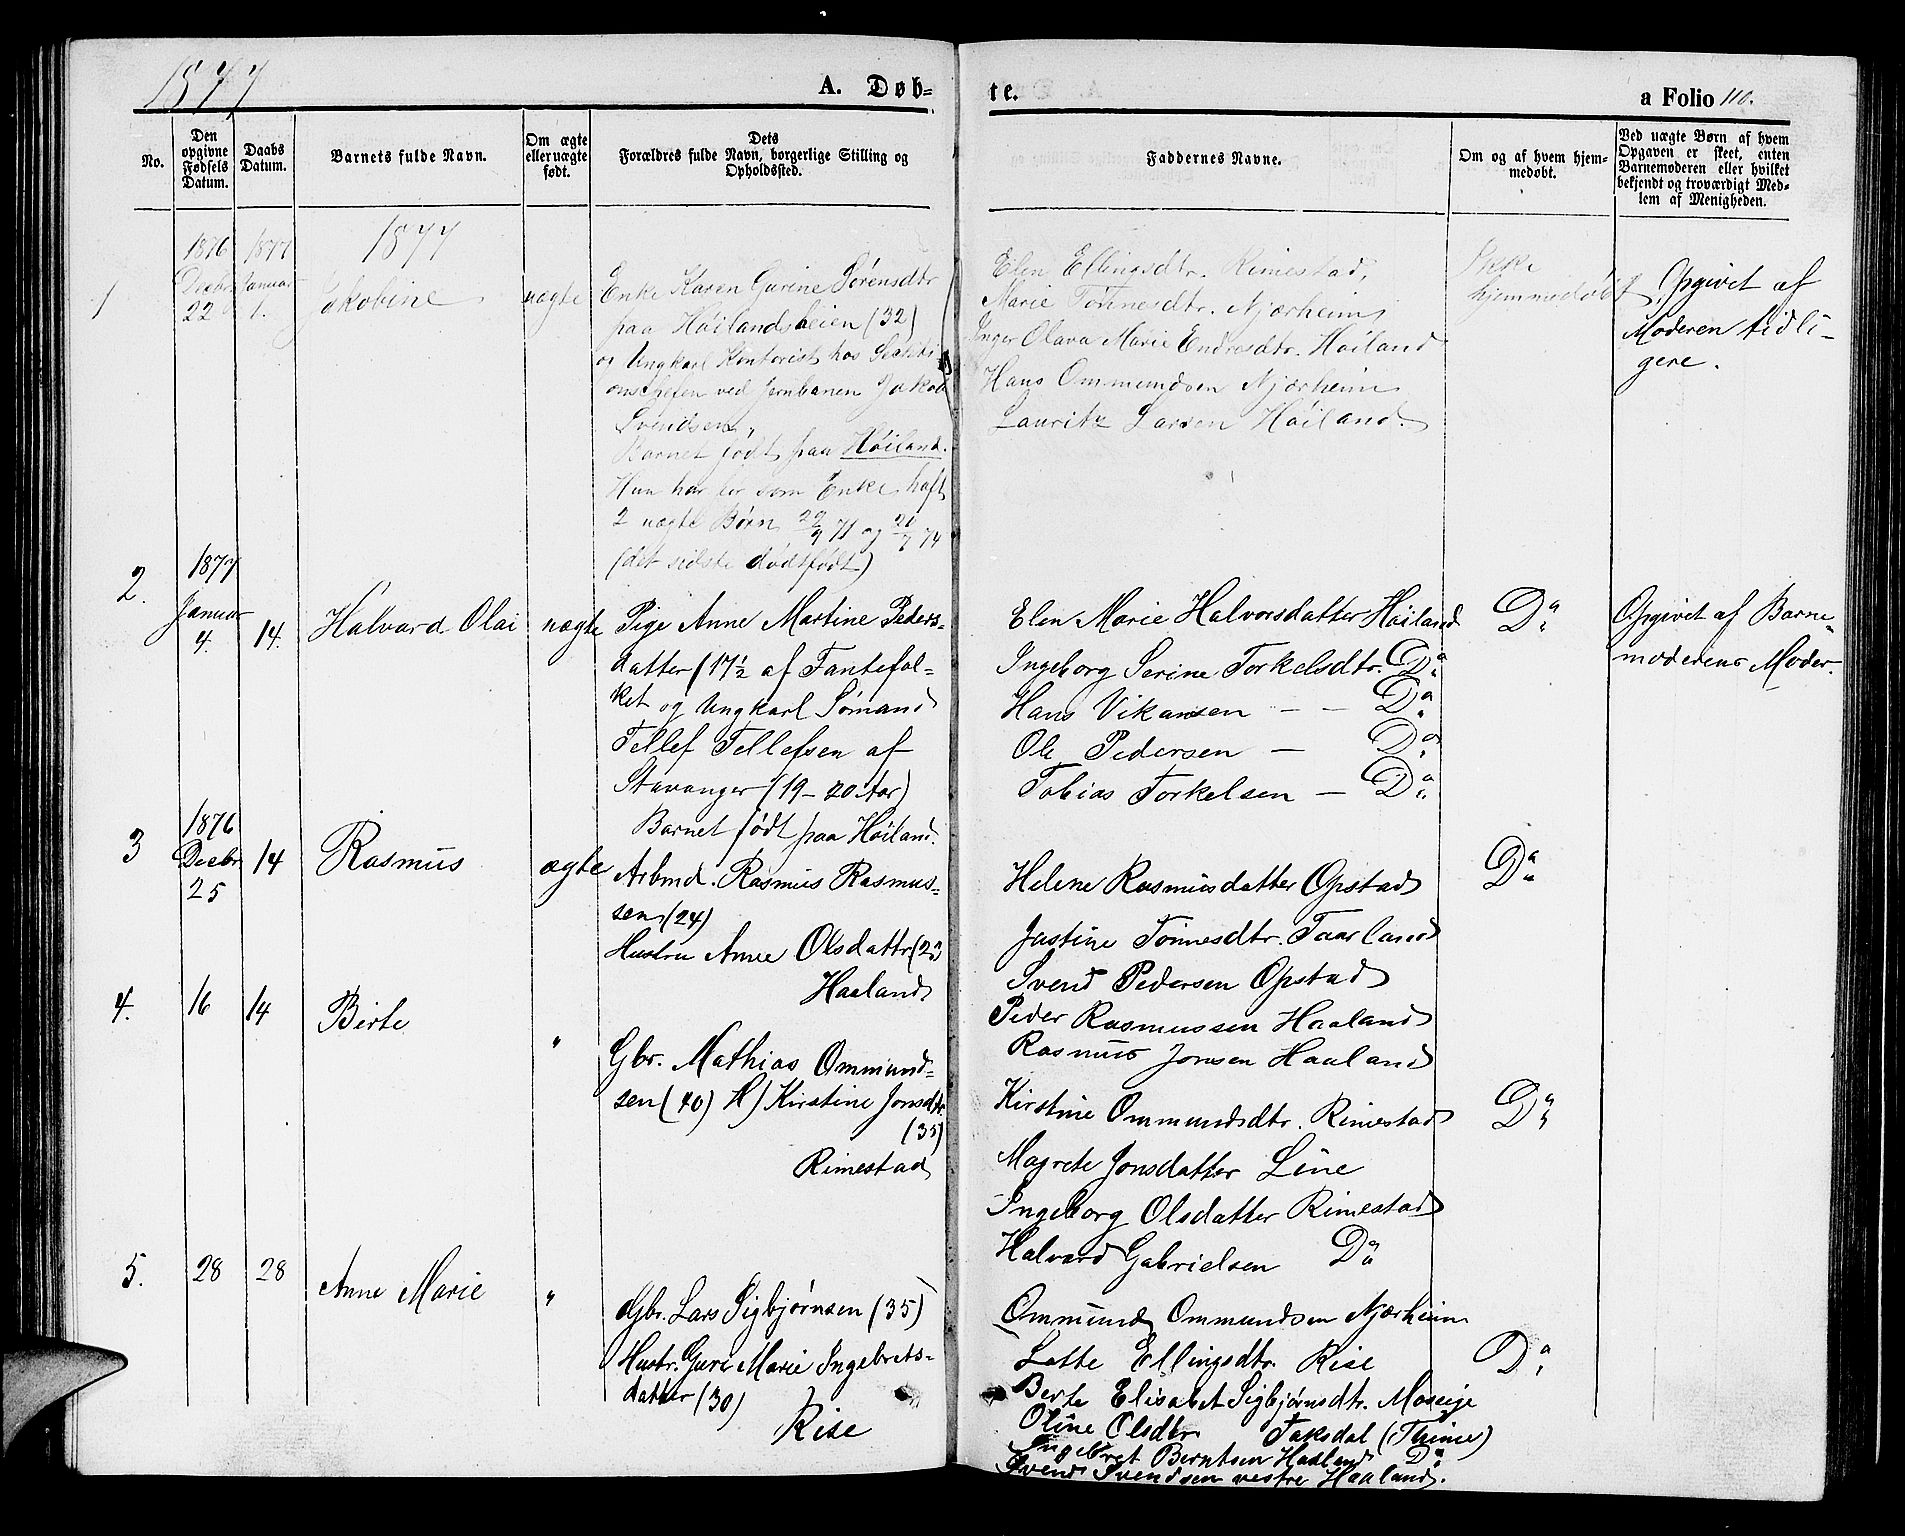 1877
A. Døb-
te.
a Folio 110.
No.
Den opgivne Fødsels Datum.
Daabs Datum.
Barnets fulde Navn.
Om ægte eller uægte født.
Dets Forældres fulde Navn, borgerlige Stilling og Opholdssted.
Faddernes Navne.
Om og af hvem hjem-
medøbt.
Ved uægte Børn af hvem
Opgaven er skeet, enten
Barnemoderen eller hvilket
bekjendt og troværdigt Med-
lem af Menigheden.
1877
1
1876
Decbr
22
1877
Januar
1.
Jakobine
uægte
Enke Karen Gurine Sørensdtr
paa Höilandsheien (32)
og Ungkarl Kontorist hos Sekti-
onschefen ved Jernbanen Jakob
Svendsen.
Barnet født paa Höiland.
Hun har før som Enke haft
2 uægte Børn 29/9 71 og 20/7 74
(det sidste dødtfödt)
Elen Ellingsdtr. Rimestad,
Marie Tönnesdtr. Njærheim
Inger Olava Marie Endresdtr. Höiland
Hans Ommundsen Njærheim
Lauritz Larsen Höiland.
Ikke
hjemmedøbt
Opgivet af
Moderen tidli-
gere.
2.
1877
Januar
4.
14.
Halvard Olai
uægte
Pige Anne Martine Peders-
datter (17½ af Fantefol-
ket og Ungkarl Sömand
Tellef Tellefsen af
Stavanger (19-20 Aar)
Barnet født paa Höiland.
Elen Marie Halvorsdatter Höiland
Ingeborg Serine Torkelsdtr. Do
Hans Vikansen - - Do
Ole Pedersen - Do
Tobias Torkelsen - Do
Do
Opgivet af Barne-
moderens Moder.
3
1876
Decbr
25
14
Rasmus
ægte
Arbmd. Rasmus Rasmus-
sen (24)
Hustru Anne Olsdattr (23
Haaland
Helene Rasmusdatter Opstad
Justine Tönnesdtr. Taarland
Svend Pedersen Opstad
Peder Rasmussen Haaland
Rasmus Jonsen Haaland
Do
4.
16
14
Birte
"
Gbr. Mathias Ommund-
sen (40) H) Kirstine Jonsdtr.
(35)
Rimestad
Kirstine Ommundsdtr. Rimestad
Magrete Jonsdatter Line
Ingeborg Olsdatter Rimestad
Halvard Gabrielsen Do
Ommund Ommundsen Njærheim
Do
5.
28
28
Anne Marie
"
Gbr. Lars Sigbjørnsen (35)
Hustr. Guri Marie Ingebrets-
datter (30)
Rise
Lotte Ellingsdtr. Rise
Berte Elisabet Sigbjørnsdtr. Mossige
Oline Olsdtr. Taksdal (Thime)
Ingebret Berntsen Haaland Do
Svend Svendsen vestre Haaland.
Do